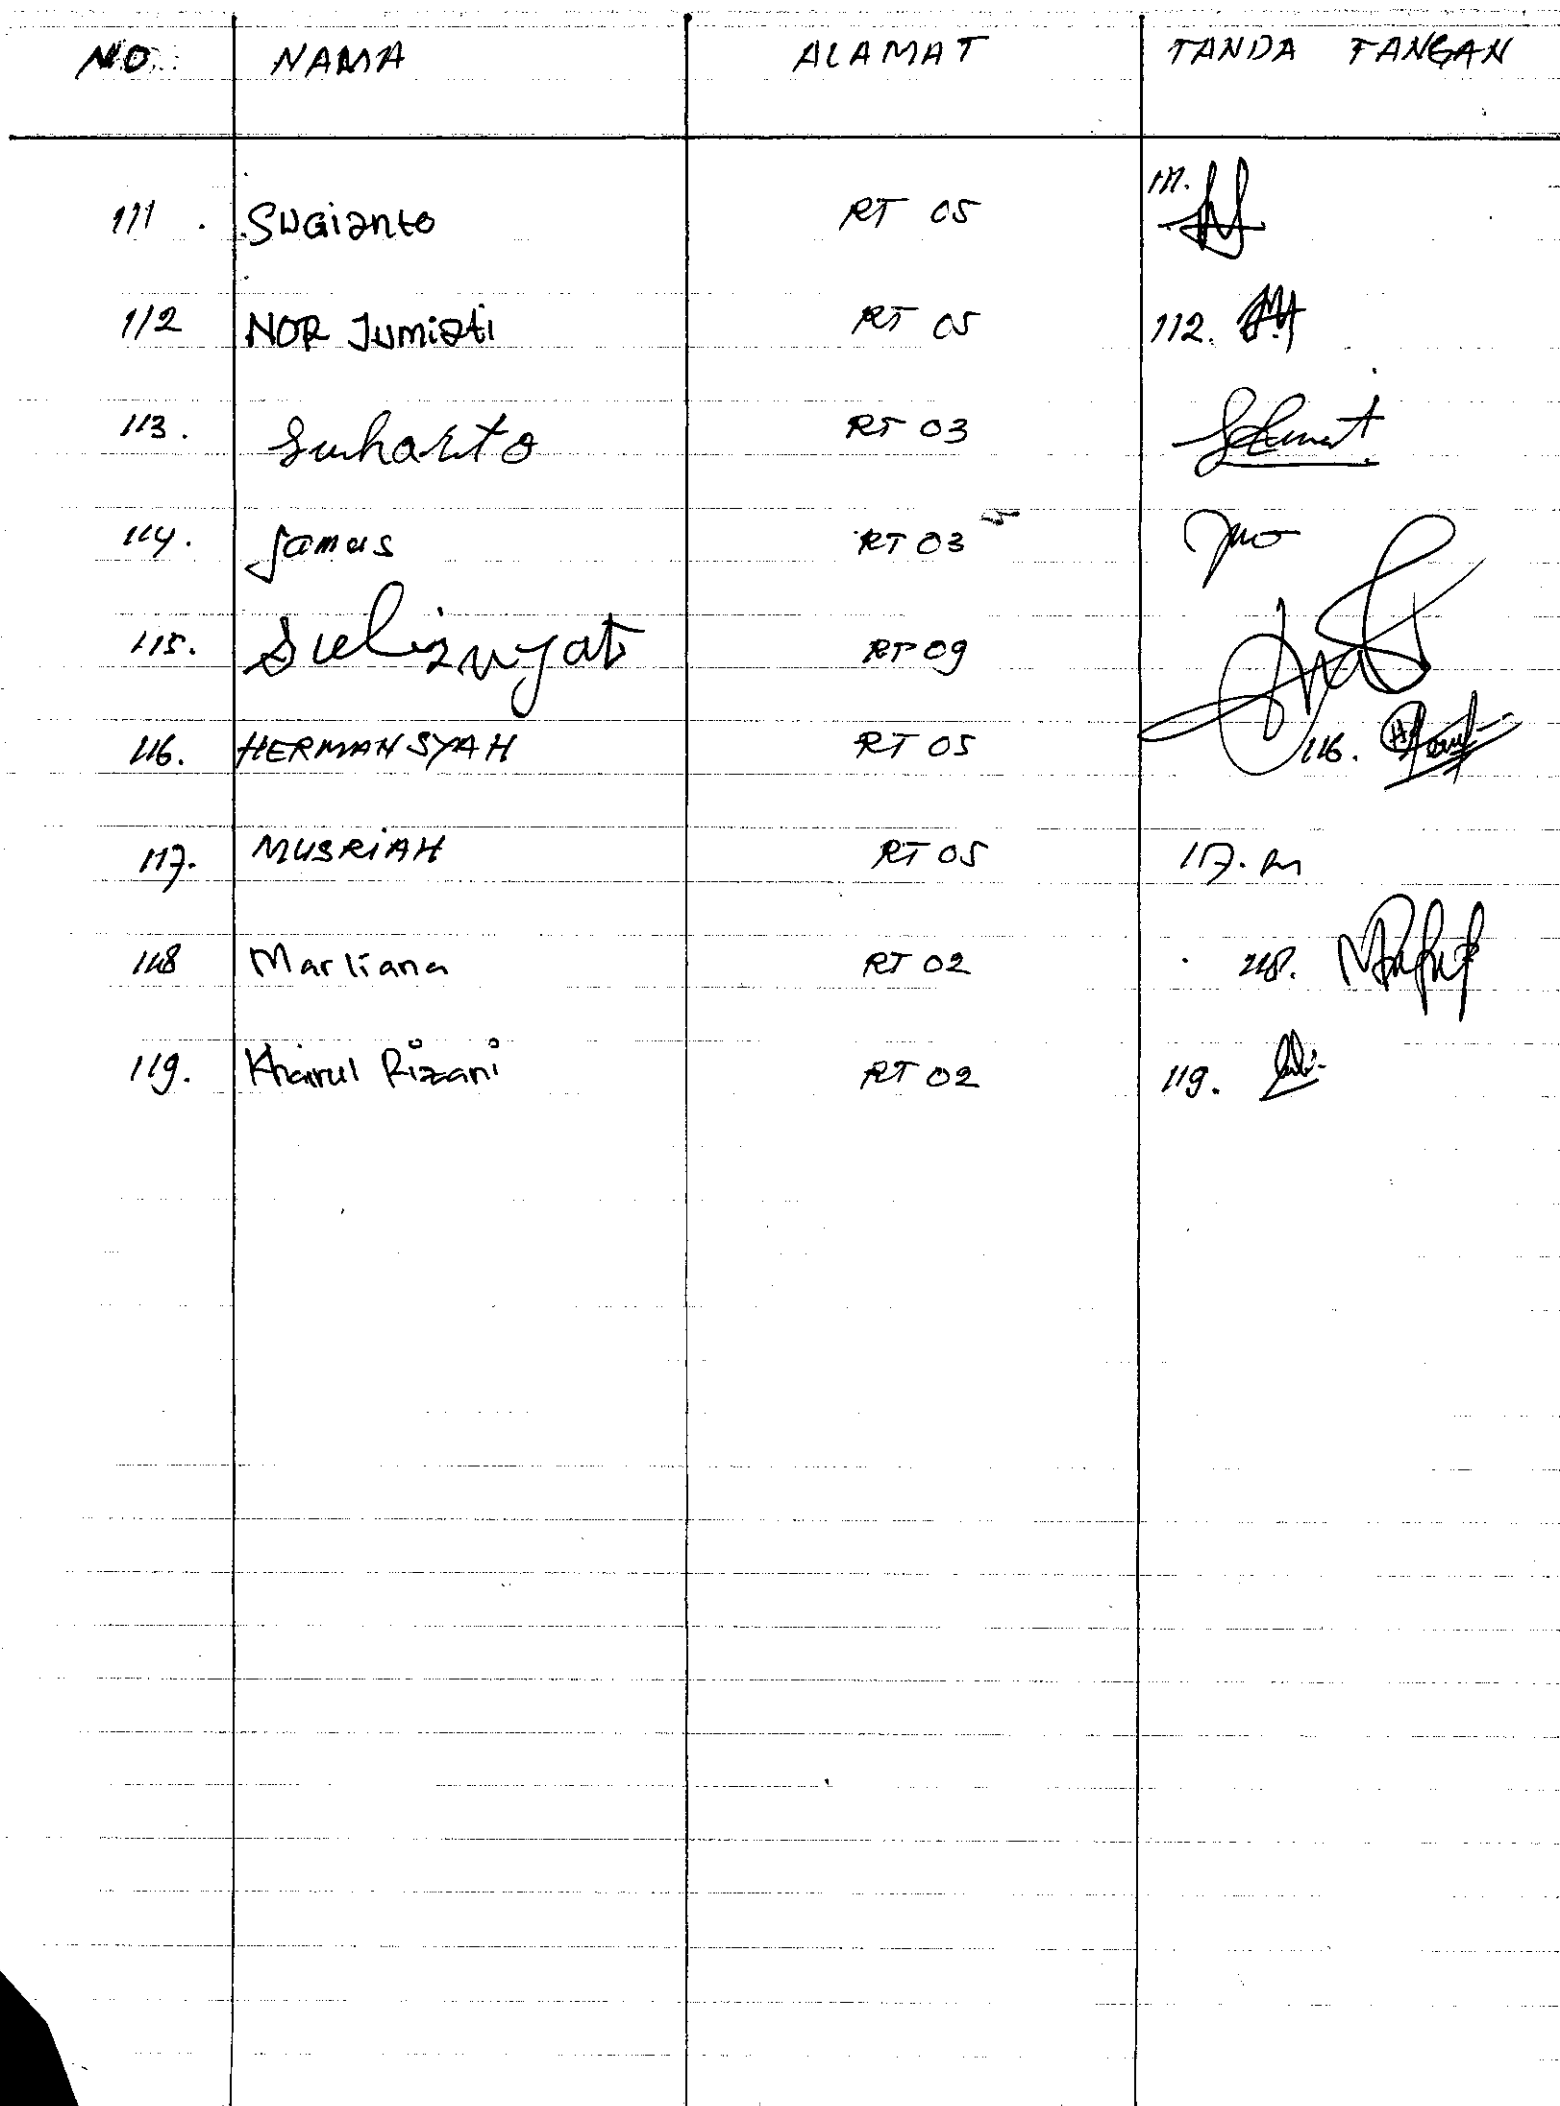 NO. NAMA ALAMAT TANDA TANGAN
111. SUGianto RT 05 111.
112 NOR Jumiati RT 05 112.
113. Suharto RT 03
114. Jamus RT 03
115. RT 09
116. HERMANSYAH RT 05 116.
117. MUSRiAH RT 05 117. m
118 Marliana RT 02 118.
119. Khairul Rizani RT 02 119.